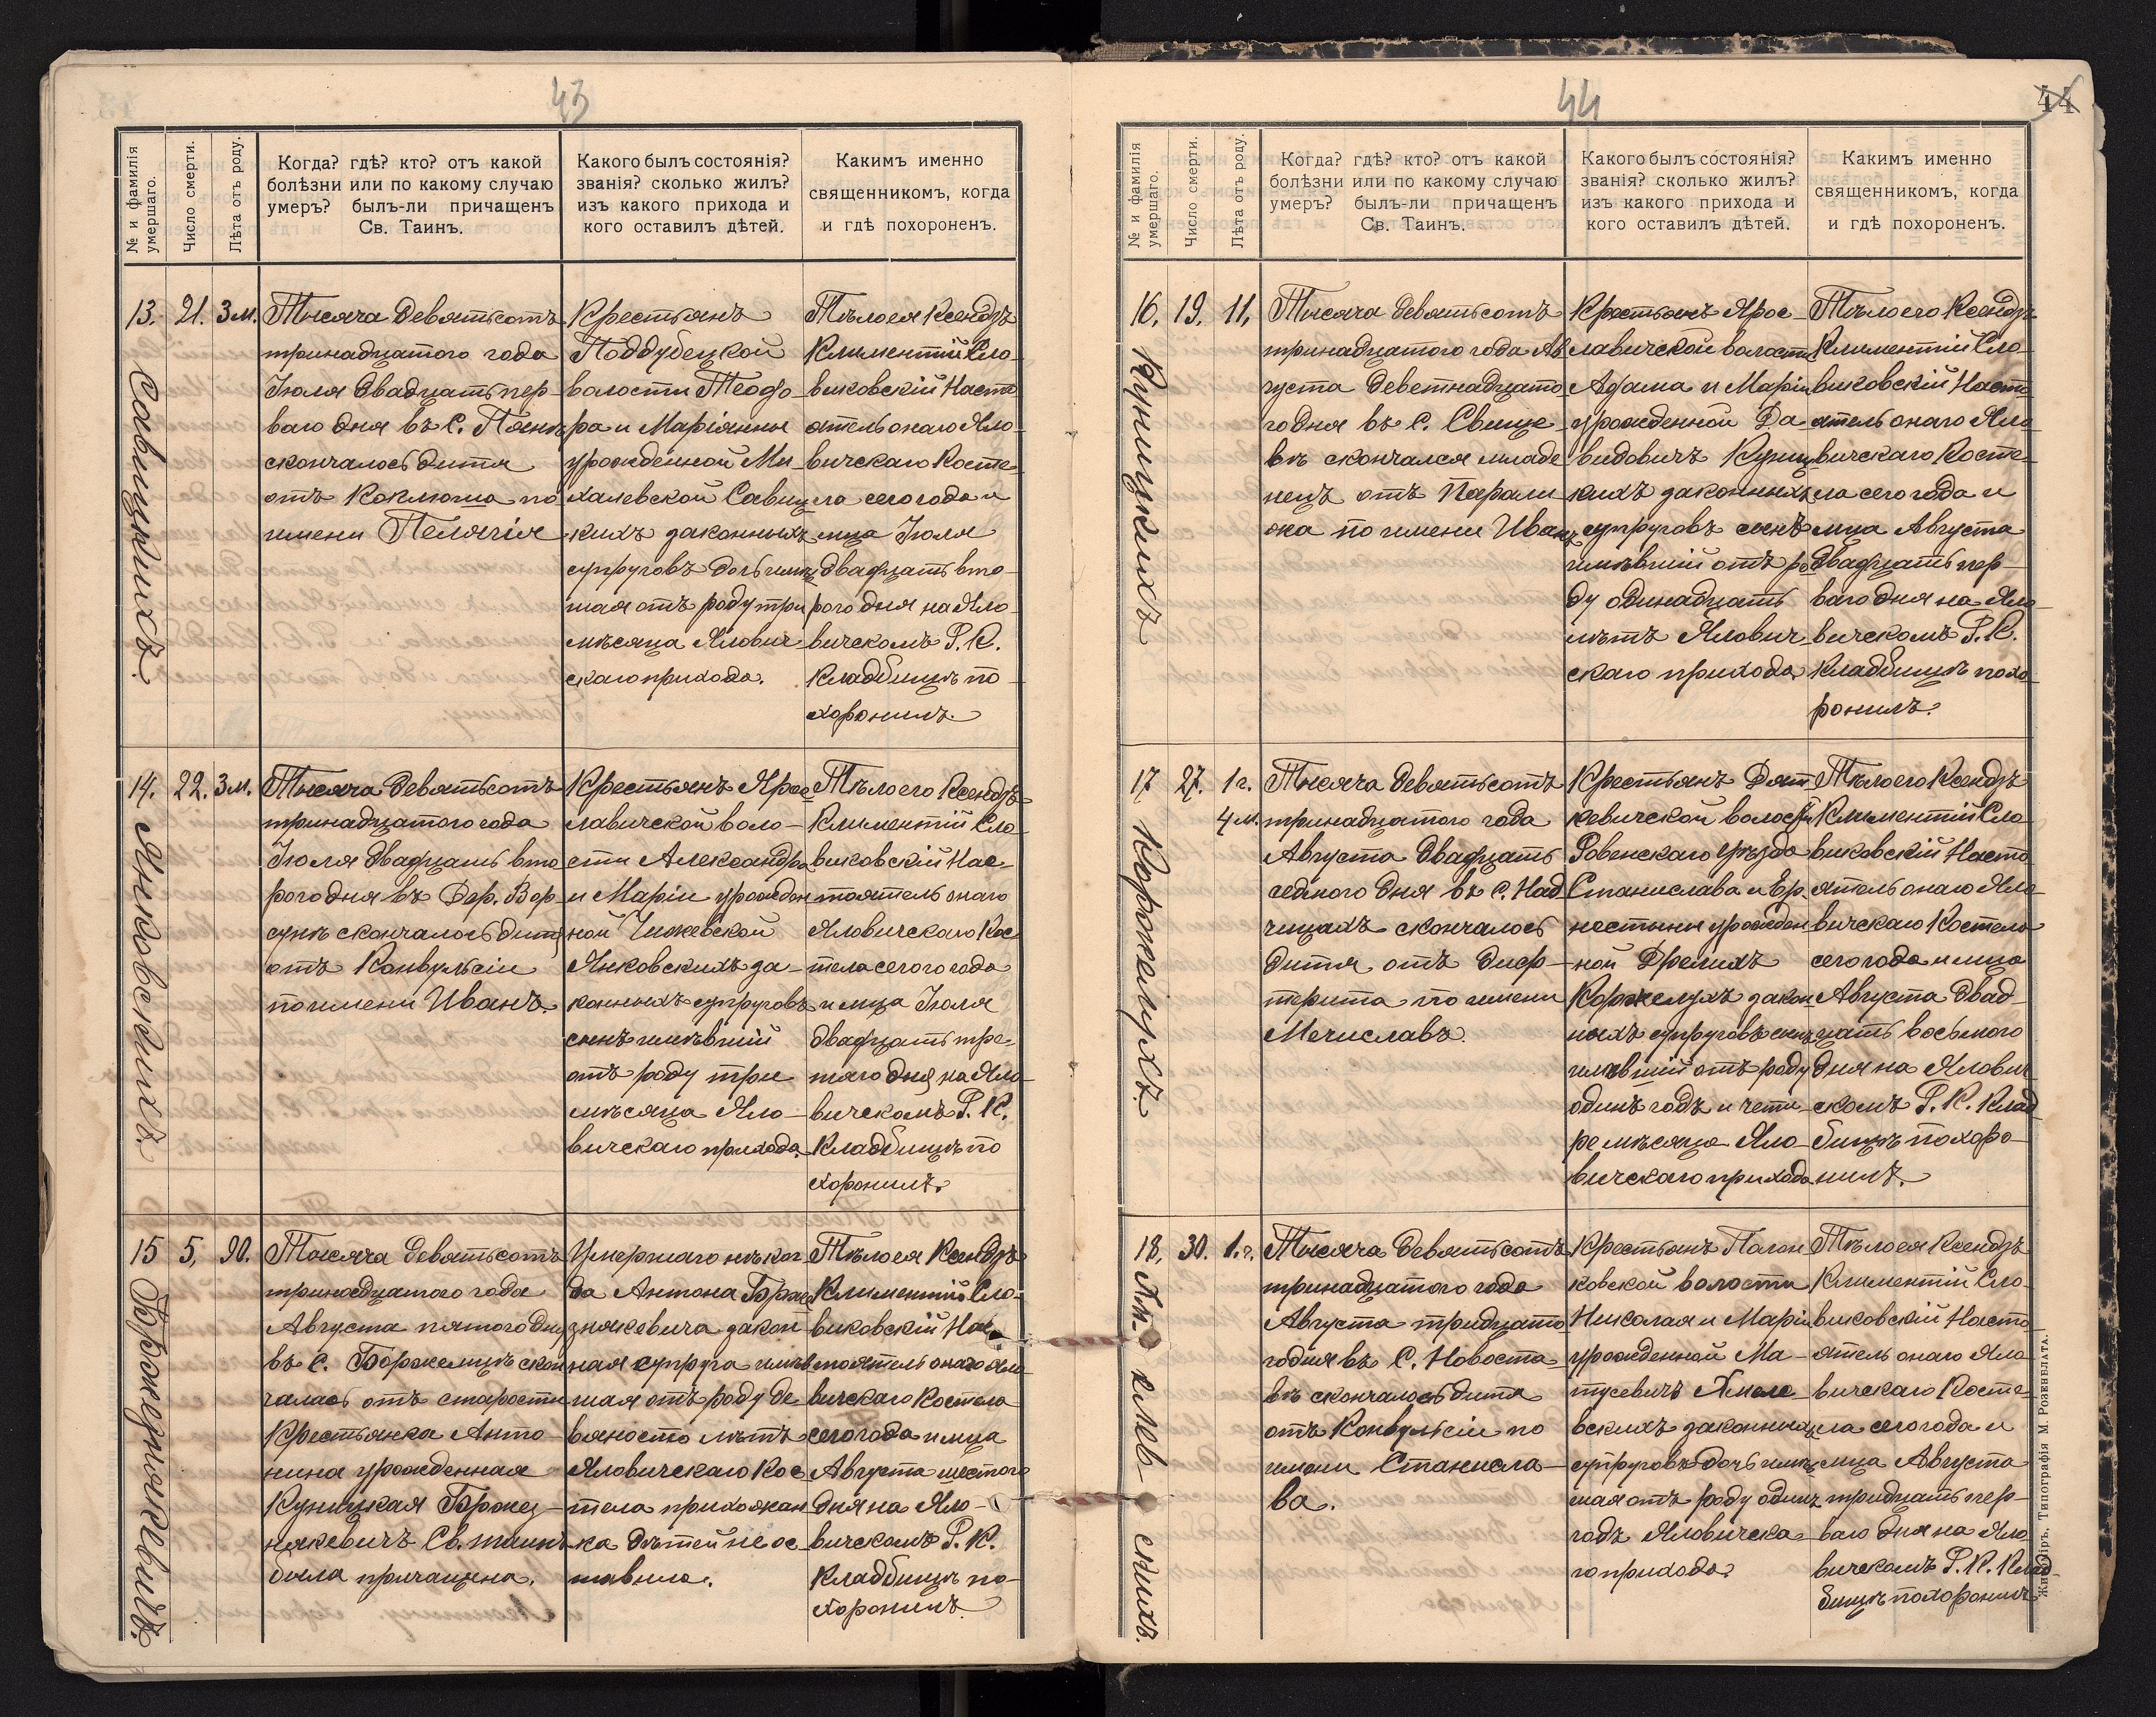 43
№ и фамилія
умершаго.
Число смерти.
Лѣта отъ роду.
Когда? гдѣ? кто? отъ какой
болѣзни или по какому случаю
умеръ? былъ-ли причащенъ
Св. Таинъ.
Какого былъ состоянія?
званія? сколько жилъ?
изъ какого прихода и
кого оставилъ дѣтей.
Какимъ именно
священникомъ, когда
и гдѣ похороненъ.
13.
Савицкихъ.
21.
3 м.
Тысяча девятьсотъ
тринадцатого года
Іюля двадцать пер-
ваго дня въ С.
скончалось дитя
отъ Коклюша по
имени Пелягія
Крестьянъ
Поддубецкой
волости Теодо-
ра и Маріянны
урожденной Ми-
халевской Савиц-
кихъ законныхъ
супруговъ дочь имѣв
шая отъ роду три
мѣсяца Ялович-
скаго прихода.
Тѣло ея Ксендзъ
Климентій Сло-
виковскій Насто-
ятель онаго Яло-
вичскаго Косте-
ла сего года и
мца Іюля
двадцать вто-
рого дня на Яло-
вичскомъ Р. К.
Кладбищѣ по-
хоронилъ.
14.
Янковскихъ.
22.
3 м.
Тысяча девятьсотъ
тринадцатого года
Іюля двадцать вто
рого дня въ Дер. Вор-
сукѣ скончалось дитя
отъ Конвульсіи
по имени Иванъ.
Крестьянъ Ярос-
лавичской воло-
сти Александра
и Маріи урожден-
ной Чижевской
Янковскихъ за-
конныхъ супруговъ
сынъ имѣвшій
отъ роду три
мѣсяца Яло-
вичскаго прихода.
Тѣло его Ксендзъ
Климентій Сло-
виковскій Нас-
тоятель онаго
Яловичскаго Кос-
тела сего года
и мца Іюля
двадцать тре-
тяго дня на Яло-
вичскомъ Р. К.
Кладбищѣ по
хоронилъ.
15
Боржезнякевичъ.
5,
90.
Тысяча девятьсотъ
тринадцатого года
Августа пятого дня
въ С. Боржемицѣ скон
чалась отъ старости
Крестьянка Анто-
нина урожденная
Куницкая Боржез-
някевичъ Св. таинъ
была причащена.
Умершаго нѣког-
да Антона Борже
знякевича закон-
ная супруга имѣв
шая отъ роду де-
вяносто лѣтъ
Яловичскаго Кос-
тела прихожан-
ка дѣтей не ос-
тавила.
Тѣло ея Ксендзъ
Климентій Сло-
виковскій Нас-
тоятель онаго Яло-
вичскаго Костела
сего года и мца
Августа шестого
дня на Яло-
вичскомъ Р. К.
Кладбищѣ по-
хоронилъ.
44
44
№ и фамилія
умершаго.
Число смерти.
Лѣта отъ роду.
Когда? гдѣ? кто? отъ какой
болѣзни или по какому случаю
умеръ? былъ-ли причащенъ
Св. Таинъ.
Какого былъ состоянія?
званія? сколько жилъ?
изъ какого прихода и
кого оставилъ дѣтей.
Какимъ именно
священникомъ, когда
и гдѣ похороненъ.
16.
Куницкихъ
19.
11,
Тысяча девятьсотъ
тринадцатого года Ав
густа деветнадцато-
го дня въ С. Свище-
въ скончался младе
нецъ отъ Парали
жа по имени Иванъ
Крестьянъ Ярос-
лавичской волости
Адама и Маріи
урожденной Да-
видовичъ Куниц
кихъ законныхъ
супруговъ сынъ
имѣвшій отъ ро
ду одинадцать
лѣтъ Ялович-
скаго прихода
Тѣло его Ксендзъ
Климентій Сло-
виковскій Насто-
ятель онаго Яло-
вичскаго Косте-
ла сего года и
мца Августа
двадцать пер-
ваго дня на Яло-
вичскомъ Р. К.
Кладбищѣ похо-
ронилъ.
17
Коржелухъ.
27.
1 г.
4 м.
Тысяча девятьсотъ
тринадцатого года
Августа двадцать
седмого дня въ С. Над
чицахъ скончалось
дитя отъ Диф-
терита по имени
Мечиславъ.
Крестьянъ Дят-
кевичской волости
Ровенскаго Уѣзда
Станислава и Ер-
нестины урожден
ной Дрелихъ
Коржелухъ закон
ныхъ супруговъ сынъ
имѣвшій отъ роду
одинъ годъ и чети-
ре мѣсяца Яло-
вичскаго прихода
Тѣло его Ксендзъ
Климентій Сло-
виковскій Насто
ятель онаго Яло-
вичскаго Костела
сего года и мца
Августа двад-
цать восьмого
дня на Ялович-
скомъ Р. К. Клад-
бищѣ похоро-
нилъ.
18.
Хмѣлевскихъ.
30.
1 г.
Тысяча девятьсотъ
тринадцатого года
Августа тридцато
го дня въ С. Новоста-
въ скончалось дитя
отъ Конвульсіи по
имени Станисла-
ва.
Крестьянъ
ковской волости
Николая и Маріи
урожденной Ма-
тусевичъ Хмеле-
вскихъ законныхъ
супруговъ дочь имѣв
шая отъ роду одинъ
годъ Яловичска-
го прихода.
Тѣло ея Ксендзъ
Климентій Сло-
виковскій Насто-
ятель онаго Яло-
вичскаго Косте-
ла сего года и
мца Августа
тридцать пер-
ваго дня на Яло-
вичскомъ Р. К. Клад-
бищѣ похоронилъ
Житоміръ. Типографія М. Розенблата.